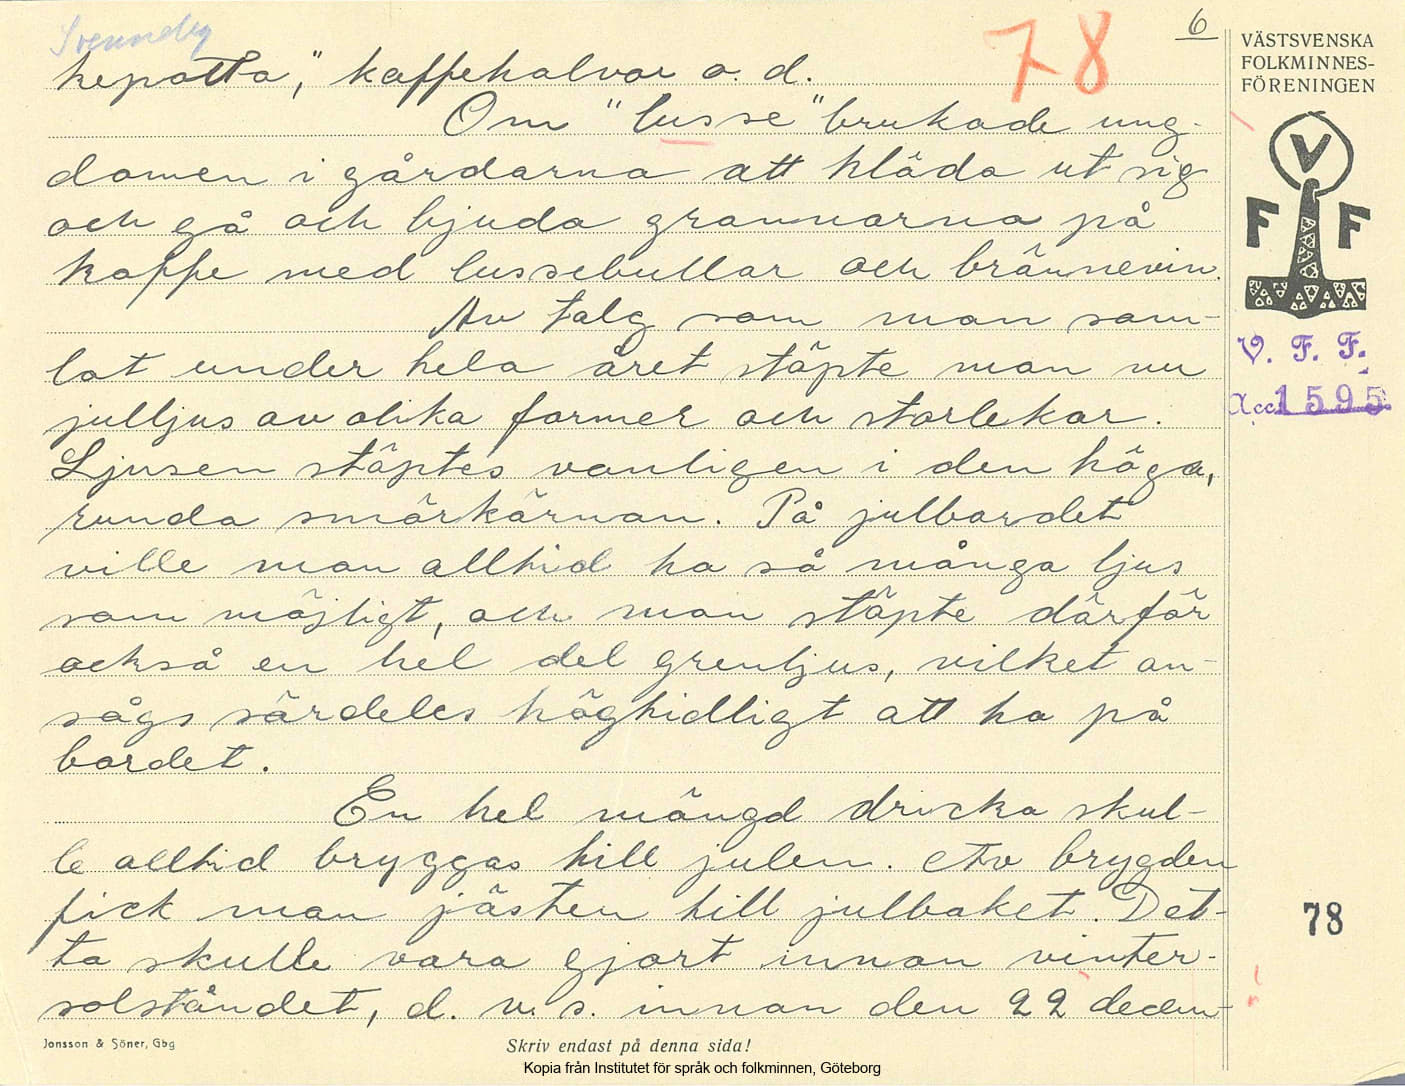 6
78
kepatta," kaffehalvar o. d.
Om "lusse" brukade ung-
domen i gårdarna att kläda ut sig
och gå och bjuda grannarna på
kaffe med lussebullar och brännevin.
Av talg som man sam-
lat under hela året stöpte man nu
julljus av olika former och storlekar.
Ljusen stöptes vanligen i den höga,
runda smörkärnan. På julbordet
ville man alltid ha så många ljus
som möjligt, och man stöpte därför
också en hel del grenljus, vilket an-
sågs särdeles högtidligt att ha på
bordet.
En hel mängd dricka skul-
le alltid bryggas till julen. Av brygden
fick man jästen till julbaket. Det-
ta skulle vara gjort innan vinter-
solståndet, d. v. s. innan den 22 decem-
VÄSTSVENSKA
FOLKMINNES-
FÖRENINGEN
V
F F
V. F. F.
Acc. 1595
78
Jonsson & Söner, Gbg
Skriv endast på denna sida!
Kopia från Institutet för språk och folkminnen, Göteborg